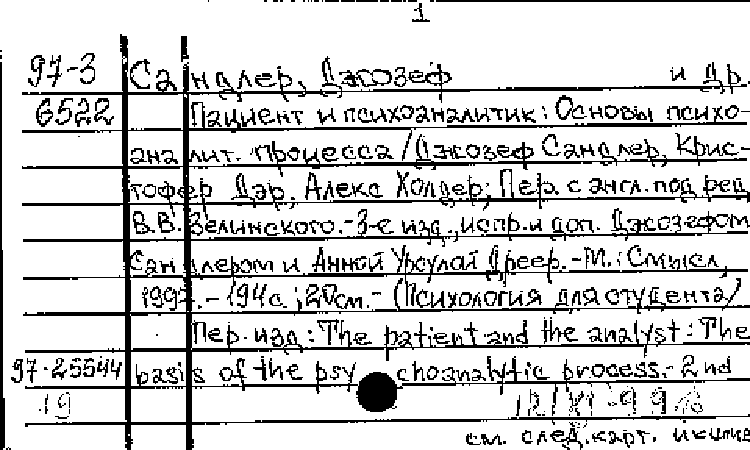 1
97-3 Сандлер, Джозеф и др.
6522 Пациент и психоаналитик: Основы психо-
аналит. процесса / Джозеф Сандлер, Крис-
тофер Дэр, Алекс Холдер; Пер. с англ. под ред.
В.В. Зелинского.-3-е изд., испр. и доп. Джозефом
Сандлером и Анной Урсулай Дреер.-М.: Смысл,
1997.-194с.; 20см.- (Психология для студента)
Пер. изд: The patient and the analyst: The
97-25544 basis of the psychoanalytic process.- 2nd
19
см. след. карт.